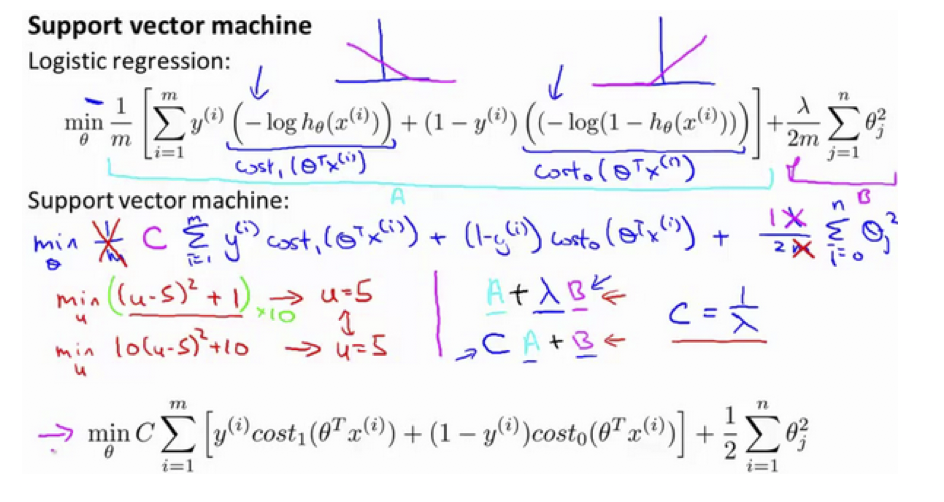 Support vector machine
Logistic regression:
min_θ 1/m [ Σ_{i=1}^{m} y^{(i)} (−log h_θ(x^{(i)})) + (1 − y^{(i)}) ((−log(1 − h_θ(x^{(i)}))) ] + λ/2m Σ_{j=1}^{n} θ_j^2
cost_1(θ^T x^{(i)}) cost_0(θ^T x^{(i)})
A B
Support vector machine:
min_θ 1/m C Σ_{i=1}^{m} y^{(i)} cost_1(θ^T x^{(i)}) + (1-y^{(i)}) cost_0(θ^T x^{(i)}) + 1λ/2m Σ_{i=0}^{n} θ_j^2
min_u ((u-5)^2 + 1) ×10 → u=5 A + λB ← C = 1/λ
↕
min_u 10(u-5)^2+10 → u=5 → C A + B ←
→ min_θ C Σ_{i=1}^{m} [ y^{(i)} cost_1(θ^T x^{(i)}) + (1 − y^{(i)}) cost_0(θ^T x^{(i)}) ] + 1/2 Σ_{i=1}^{n} θ_j^2